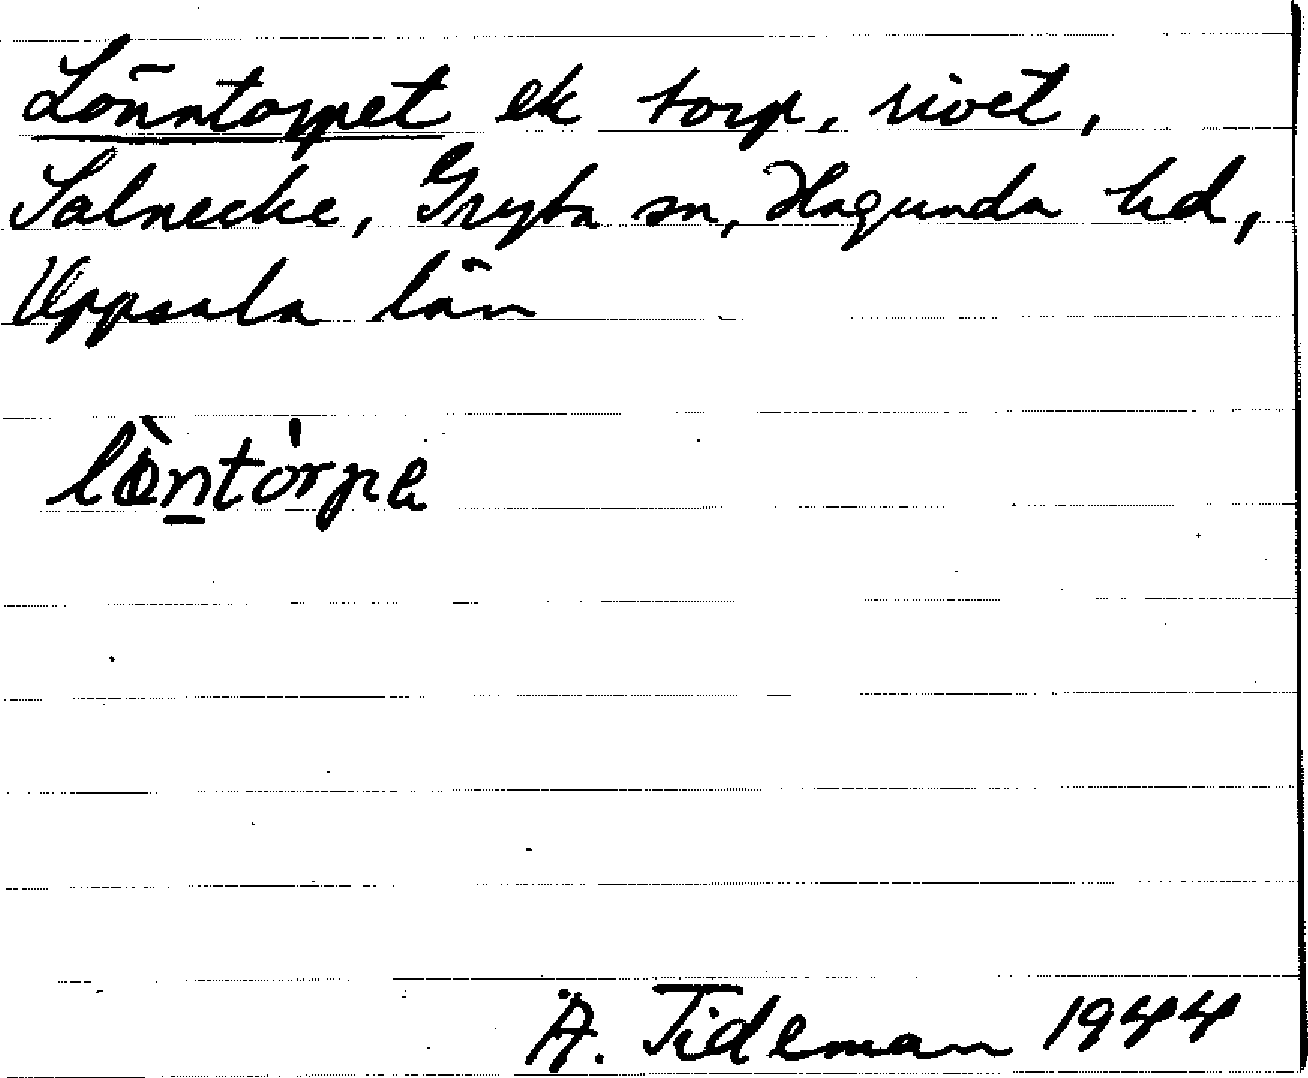 Lönntorpet ek torp, rivet,
Salnecke, Gryta sn, Hagunda hd,
Uppsala län
lö̀ntórpe
Ä. Tideman 1944